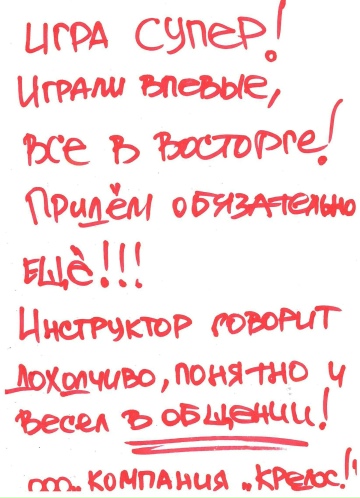 ИГРА СУПЕР!
ИГРАЛИ ВПЕВЫЕ,
ВСЕ В ВОСТОРГЕ!
ПРИДЁМ ОБЯЗАТЕЛЬНО
ЕЩЁ!!!
ИНСТРУКТОР ГОВОРИТ
ДОХОДЧИВО, ПОНЯТНО И
ВЕСЕЛ В ОБЩЕНИИ!
КОМПАНИЯ „КРЕЛОС!"